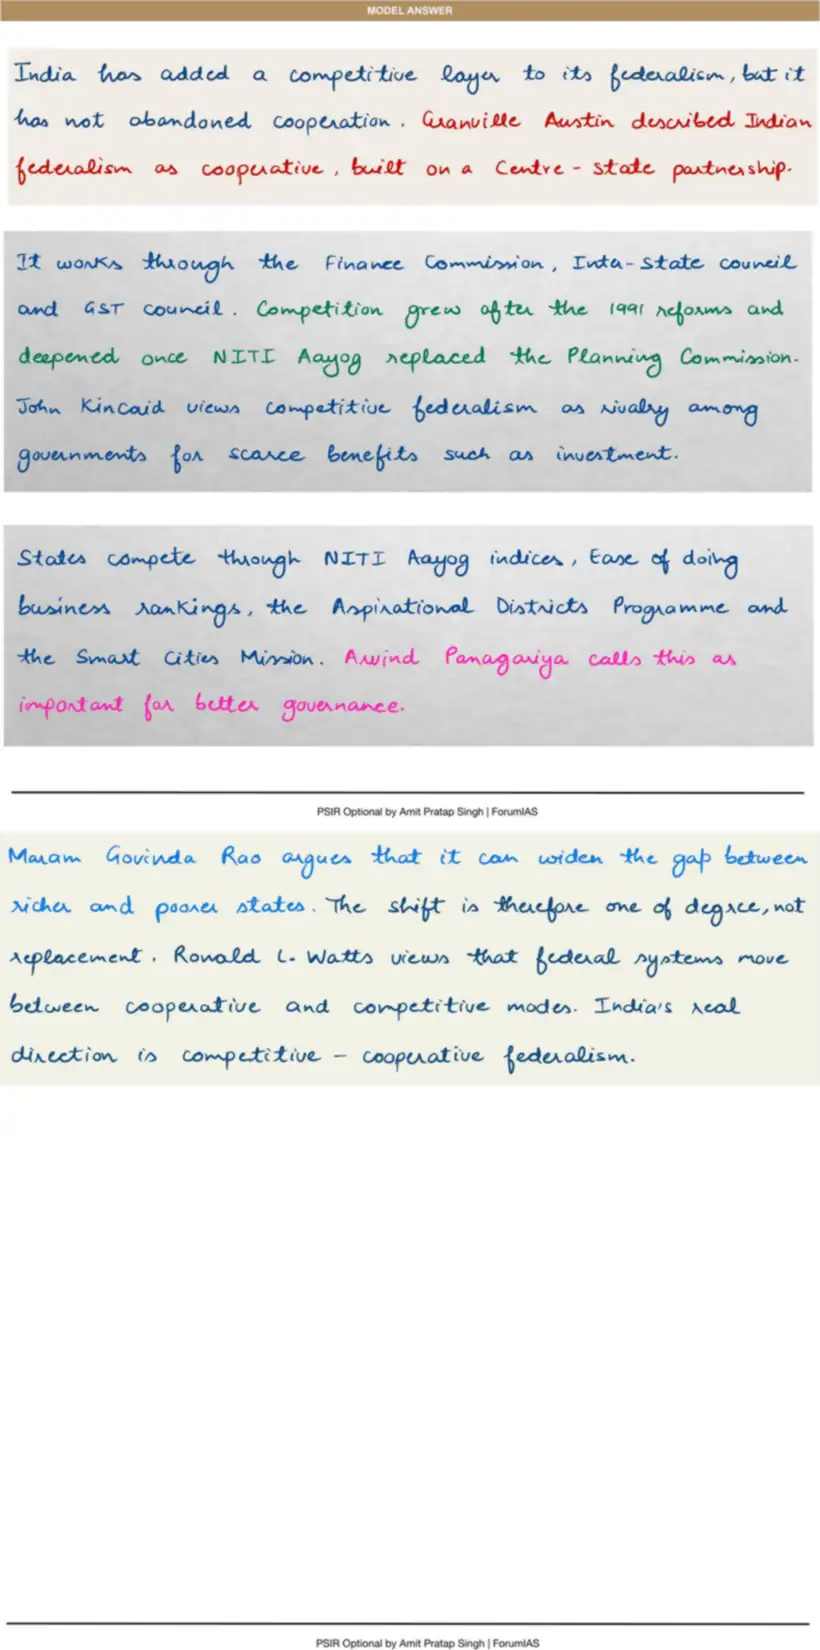 MODEL ANSWER
India has added a competitive layer to its federalism, but it
has not abandoned cooperation. Granville Austin described Indian
federalism as cooperative, built on a Centre - state partnership.
It works through the Finance Commission, Inta-state council
and GST council. Competition grew after the 1991 reforms and
deepened once NITI Aayog replaced the Planning Commission.
John Kincaid views competitive federalism as rivalry among
governments for scarce benefits such as investment.
States compete through NITI Aayog indices, Ease of doing
business rankings, the Aspirational Districts Programme and
the Smart Cities Mission. Arvind Panagariya calls this as
important for better governance.
PSIR Optional by Amit Pratap Singh | ForumIAS
Maram Govinda Rao argues that it can widen the gap between
richer and poorer states. The shift is therefore one of degree, not
replacement. Ronald L. Watts views that federal systems move
between cooperative and competitive modes. India's real
direction is competitive - cooperative federalism.
PSIR Optional by Amit Pratap Singh | ForumIAS